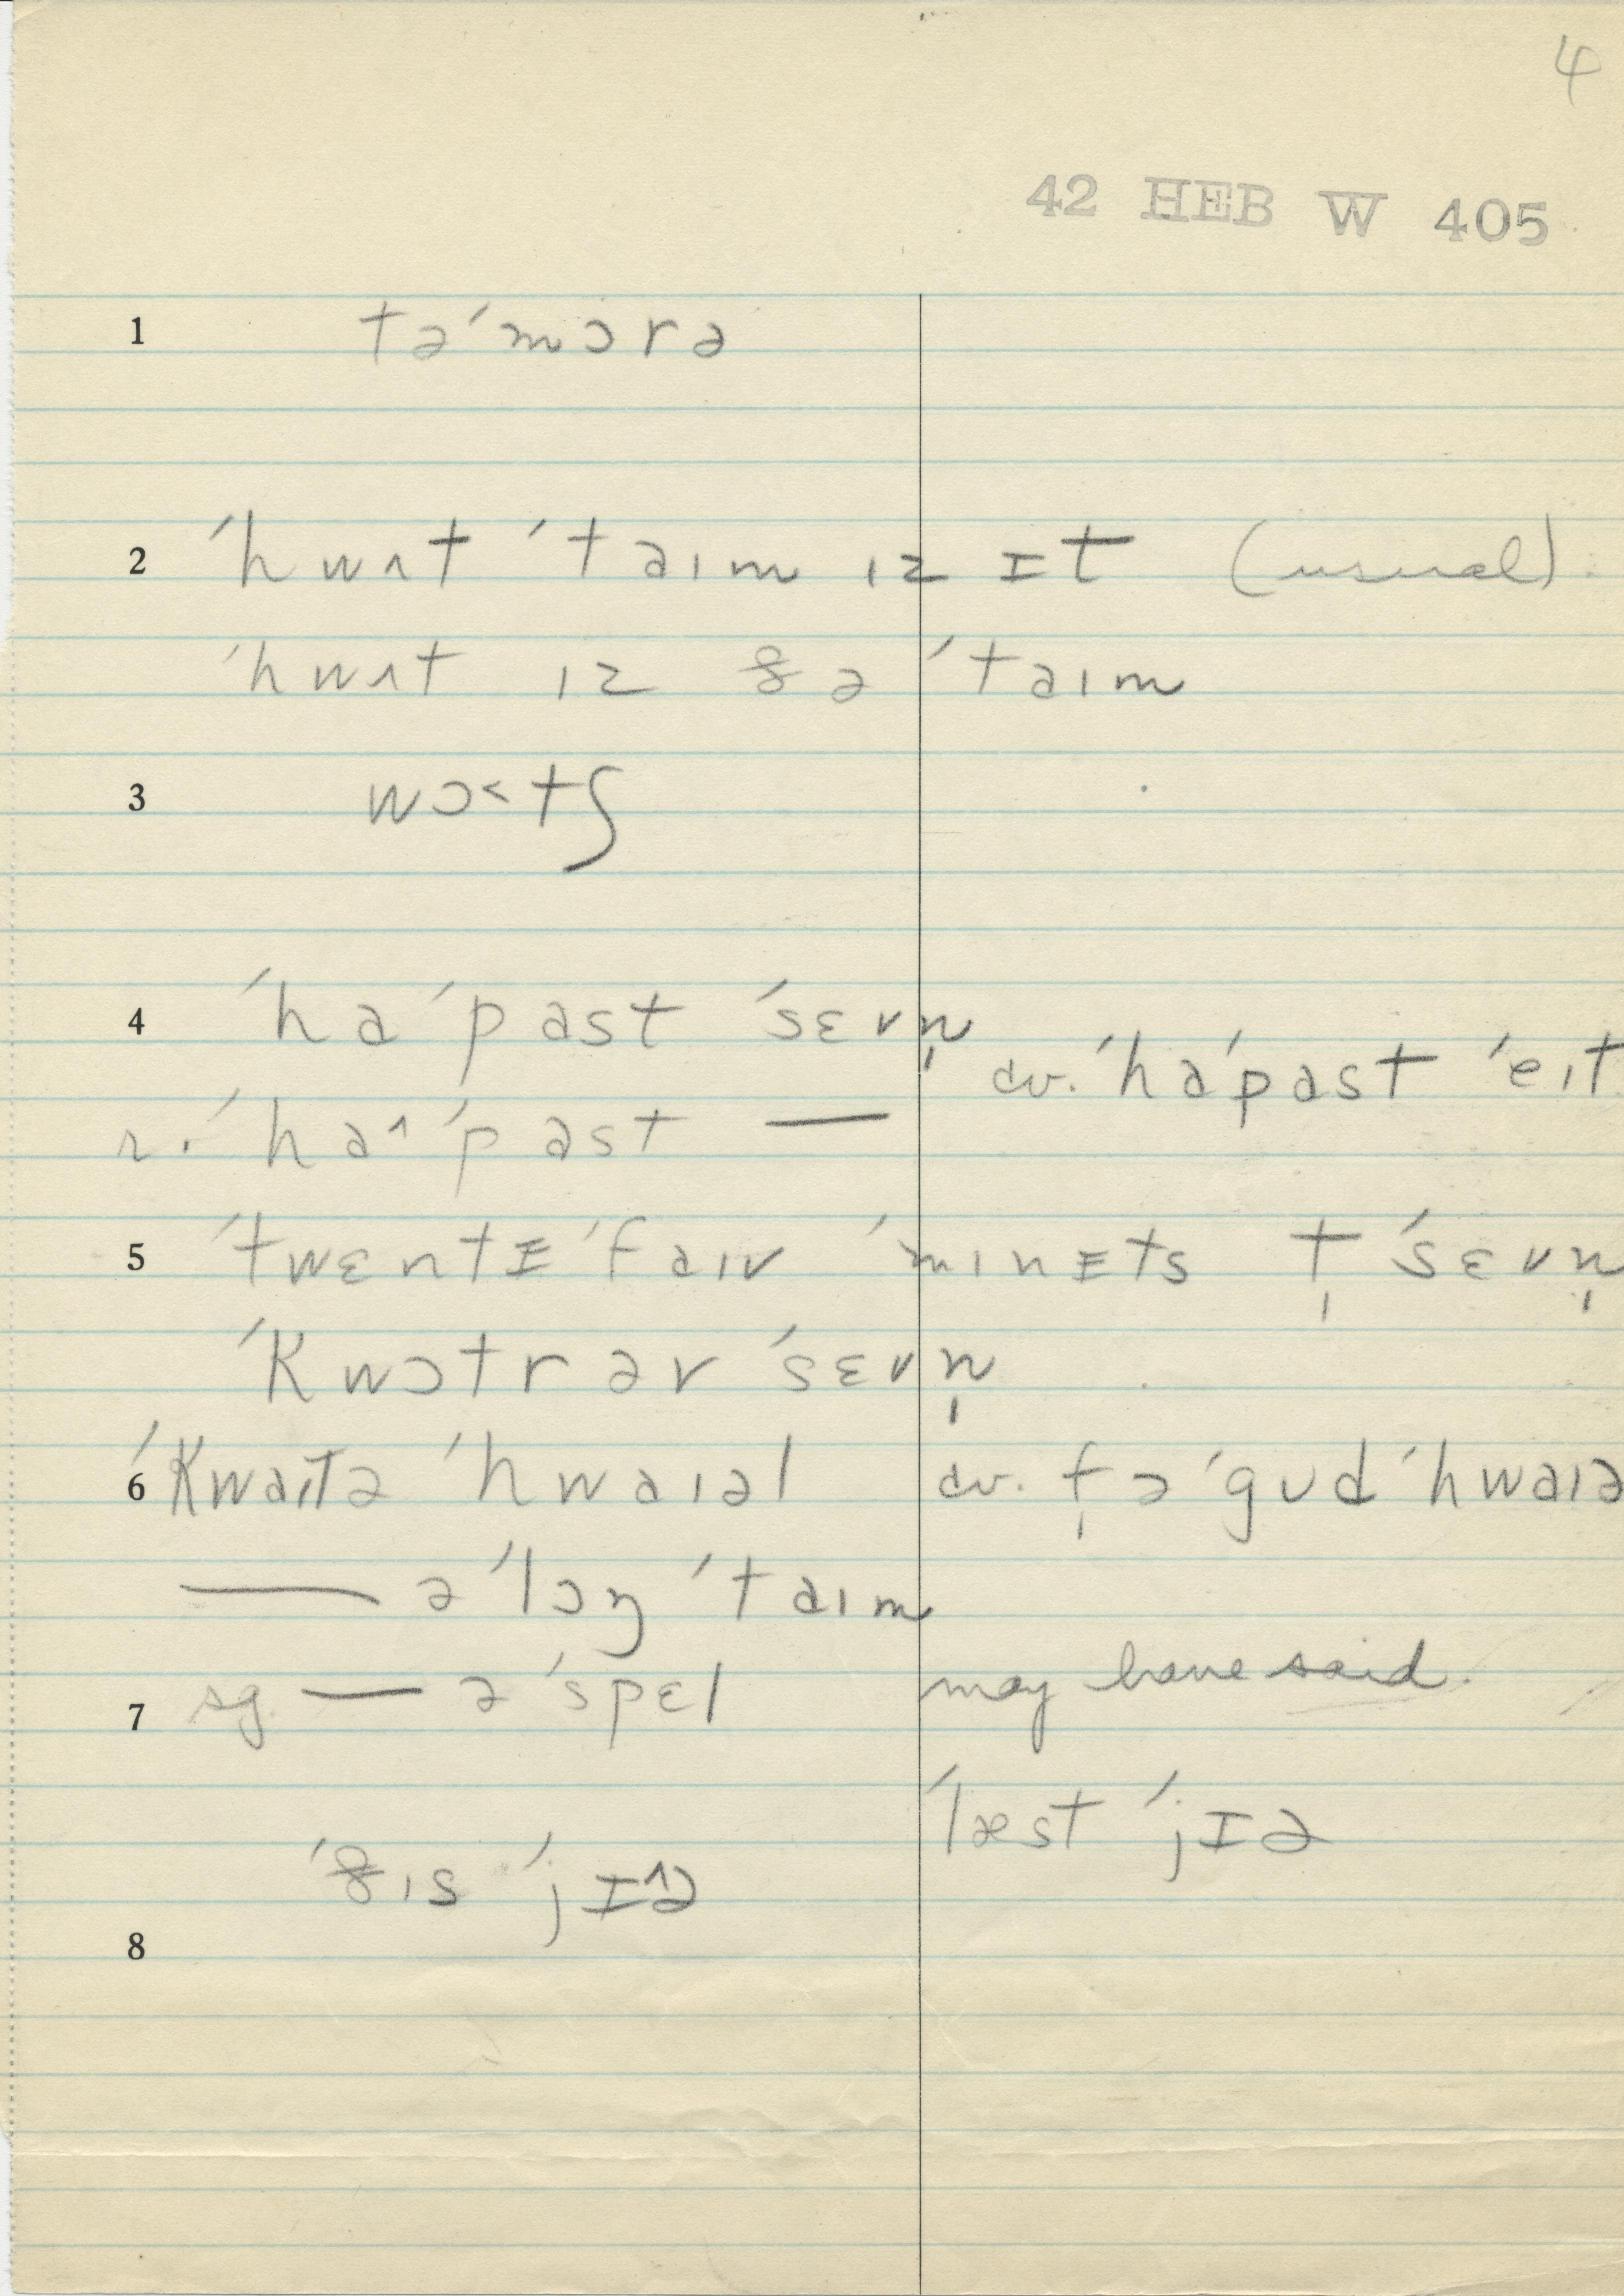 4
42 HEB W 405
1 tə´mɔrə
2 ´hwʌt ´taɪm ɪz ɪt (usual).
´hwʌt ɪz ðə ´taɪm
3 wɔ˂tʃ
4 ´ha´past ´sɛvn̩
cv. ´ha´past ´eɪt
r. ´haˆ´past —
5 ´twɛntɪ´faɪv ´mɪnɪts t̩ ´sɛvn̩
´kwɔtr əv ´sɛvn̩
6 ´kwaɪtə ´hwaɪəl cv. f̩ ə ´gud ´hwaɪə
— ə ´lɔŋ ´taɪm
7 sg. — ə ´spɛl may have said.
´læst ´jɪə
´ðɪs ´jɪˆə
8